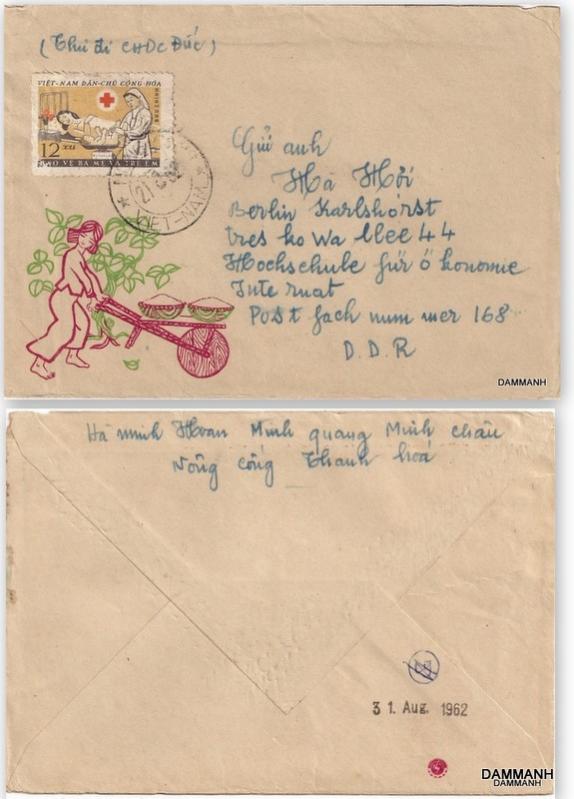 (Thư đi CHDC Đức)
VIỆT-NAM DÂN-CHỦ CỘNG-HÒA
BƯU CHÍNH
12 XU
BẢO VỆ BÀ MẸ VÀ TRẺ EM
VIET-NAM
Gửi anh
Hà Hởi
Berlin Karlshorst
tres ko Wa llee 44
Hochschule für ö konomie
Inte rnat
Post fach num mer 168
D.D.R
DAMMANH
Hà minh Hoan Minh quang Minh châu
Nông cống Thanh hoá
31. Aug. 1962
DAMMANH
DAMMANH